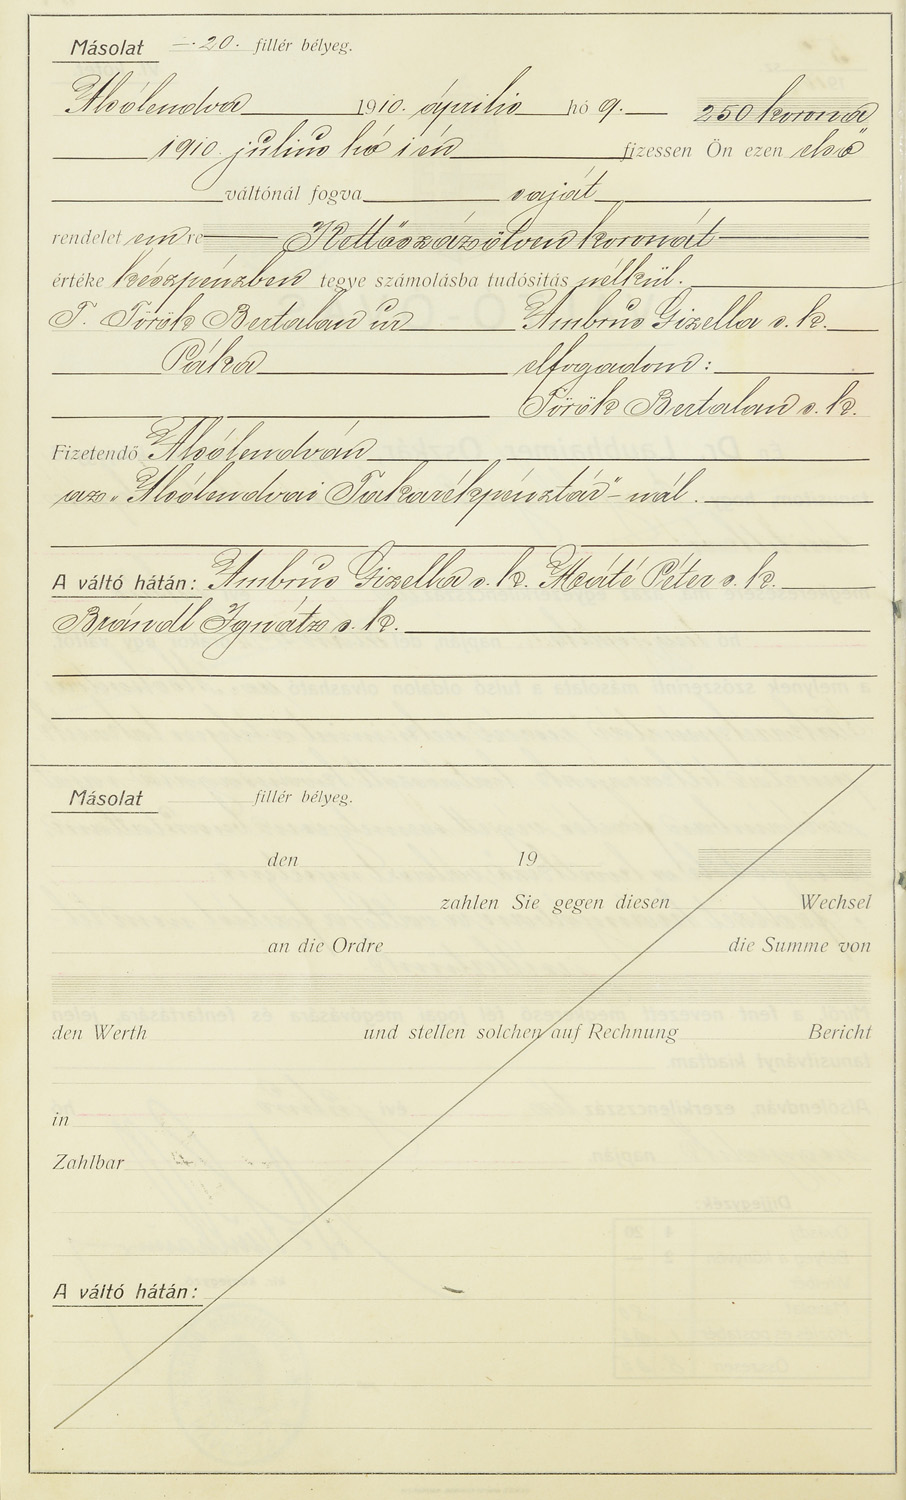 Másolat —.20. fillér bélyeg.
Alsólendva 1910. április hó 9. 250 korona
1910. julius hó 1 én fizessen Ön ezen első
váltónál fogva saját
rendelet em re Kettőszázötven koronát
értéke készpénzben tegye számolásba tudósítás nélkül.
T. Török Bertalan úr Ambrus Gizella s. k.
Páka elfogadom:
Török Bertalan s. k.
Fizetendő Alsólendván
az „Alsólendvai Takarékpénztár"-nál.
A váltó hátán: Ambrus Gizella s. k. Máté Péter s. k.
Brándl Ignátz s. k.
Másolat fillér bélyeg.
den 19
zahlen Sie gegen diesen Wechsel
an die Ordre die Summe von
den Werth und stellen solchen auf Rechnung Bericht
in
Zahlbar
A váltó hátán: